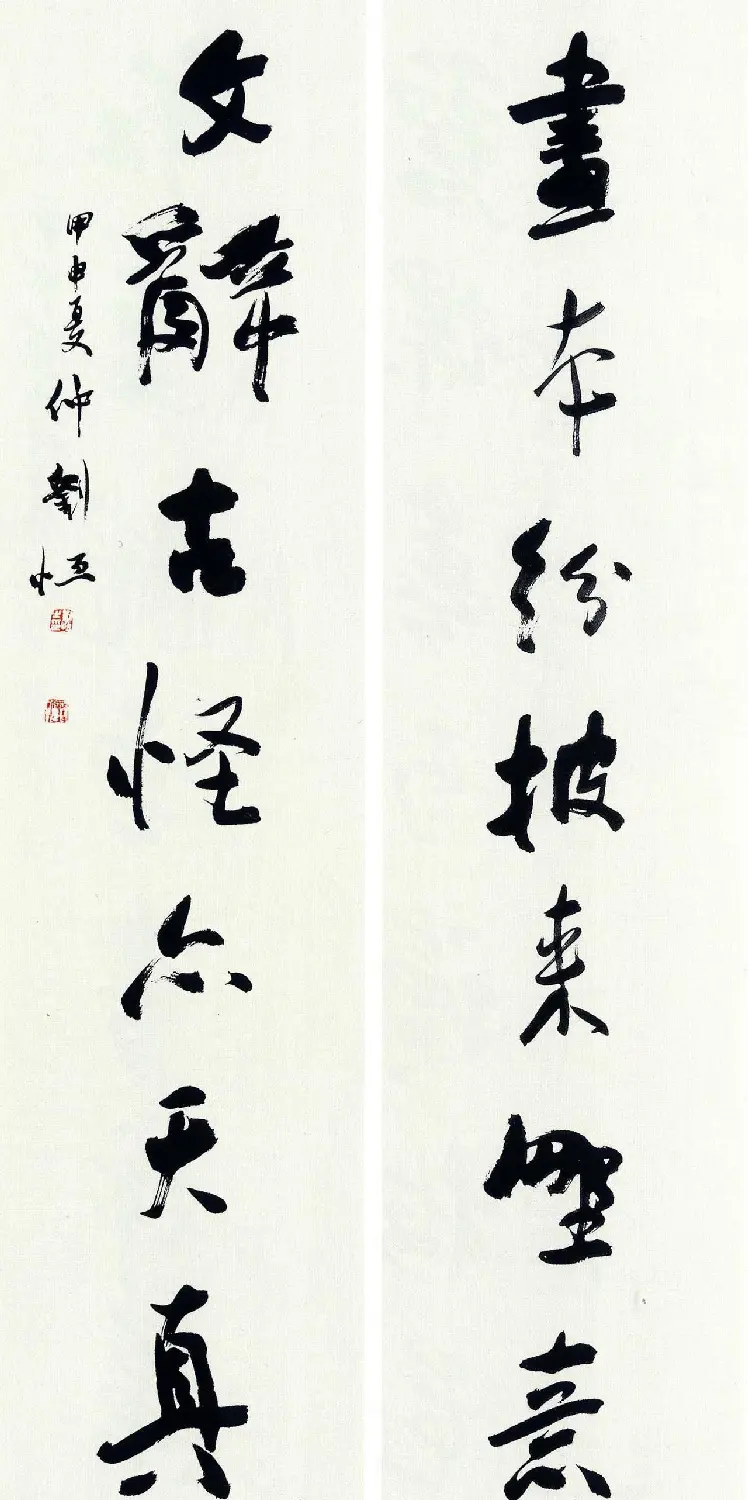 畫本紛披来野意
文辭古怪亦天真
甲申夏仲劉恒